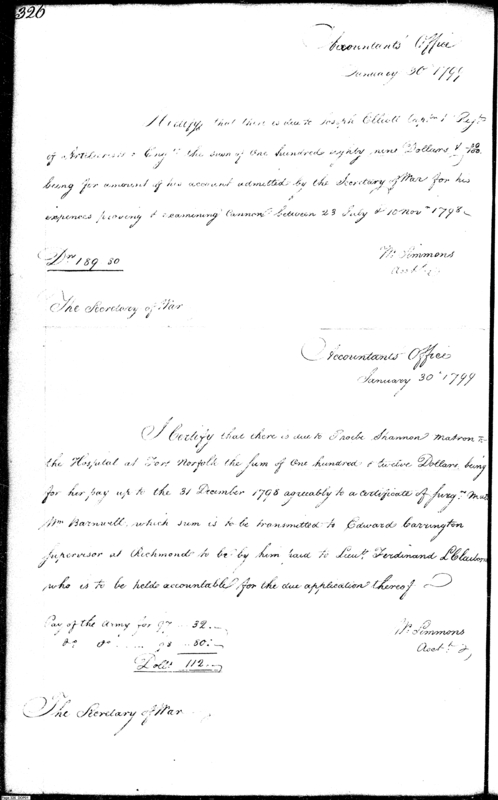 326
Accountants Office
January 30th 1799
I Certify that there is due to Joseph Elliott Captn 1st Regt
of Artillerists & Engrs the sum of One hundred eighty nine Dollars &
being for amount of his account admitted by the Secretary of War for his
expences proving & examining Cannon between 23 July & 10 Novr 1798
Drs 189 80
Wm Simmons
Acctt
The Secretary of War
Accountants Office
January 30th 1799
I Certify that there is due to Phoebe Shannon matron to
the Hospital at Fort Norfolk the sum of One hundred & twelve Dollars, being
for her pay up to the 31 December 1798 agreeably to a certificate of Surgns Mate
Wm Barnwell, which sum is to be transmitted to Edward Carrington
Supervisor at Richmond to be by him paid to Lieut Ferdinand L Claiborne
who is to be held accountable for the due application thereof
Pay of the Army for 97 .. 32.
do do 98 80.
Dolls 112
Wm Simmons
Acctt
The Secretary of War